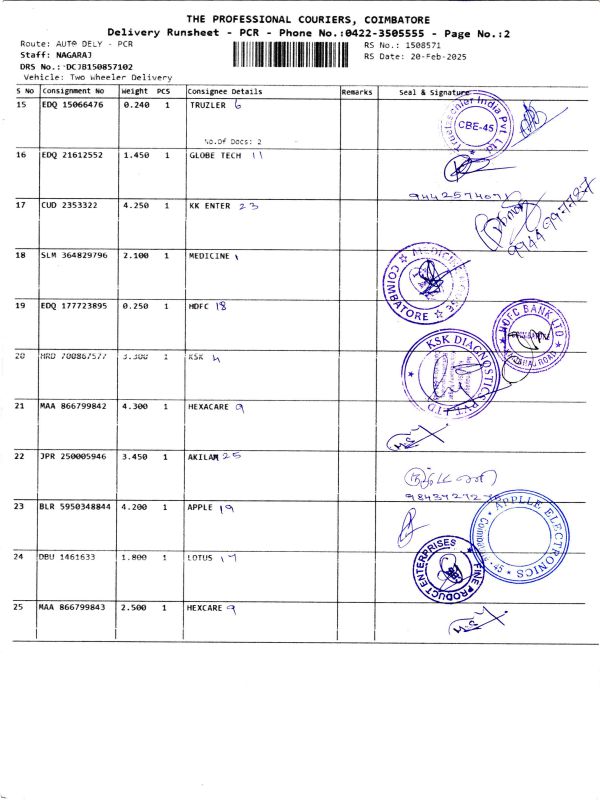 THE PROFESSIONAL COURIERS, COIMBATORE
Delivery Runsheet - PCR - Phone No.:0422-3505555 - Page No.:2
Route: AUTO DELY - PCR
RS No.: 1508571
Staff: NAGARAJ
RS Date: 20-Feb-2025
DRS No.: DCJB150857102
Vehicle: Two Wheeler Delivery
S No Consignment No Weight PCS Consignee Details Remarks Seal & Signature
15 EDQ 15066476 0.240 1 TRUZLER 6
No.Of Docs: 2
CBE-45
16 EDQ 21612552 1.450 1 GLOBE TECH 11
17 CUD 2353322 4.250 1 KK ENTER 23
18 SLM 364829796 2.100 1 MEDICINE
COIMBATORE
19 EDQ 177723895 0.250 1 HDFC 18
HDFC BANK LTD
20 HRD 700867577 3.300 1 KSK
KSK DIAGNOSTICS PVT LTD
21 MAA 866799842 4.300 1 HEXACARE 9
22 JPR 250005946 3.450 1 AKILAM 25
23 BLR 5950348844 4.200 1 APPLE 19
APPLLE ELECTRONICS
24 DBU 1461633 1.800 1 LOTUS 17
FINE PRODUCT ENTERPRISES
25 MAA 866799843 2.500 1 HEXCARE 9